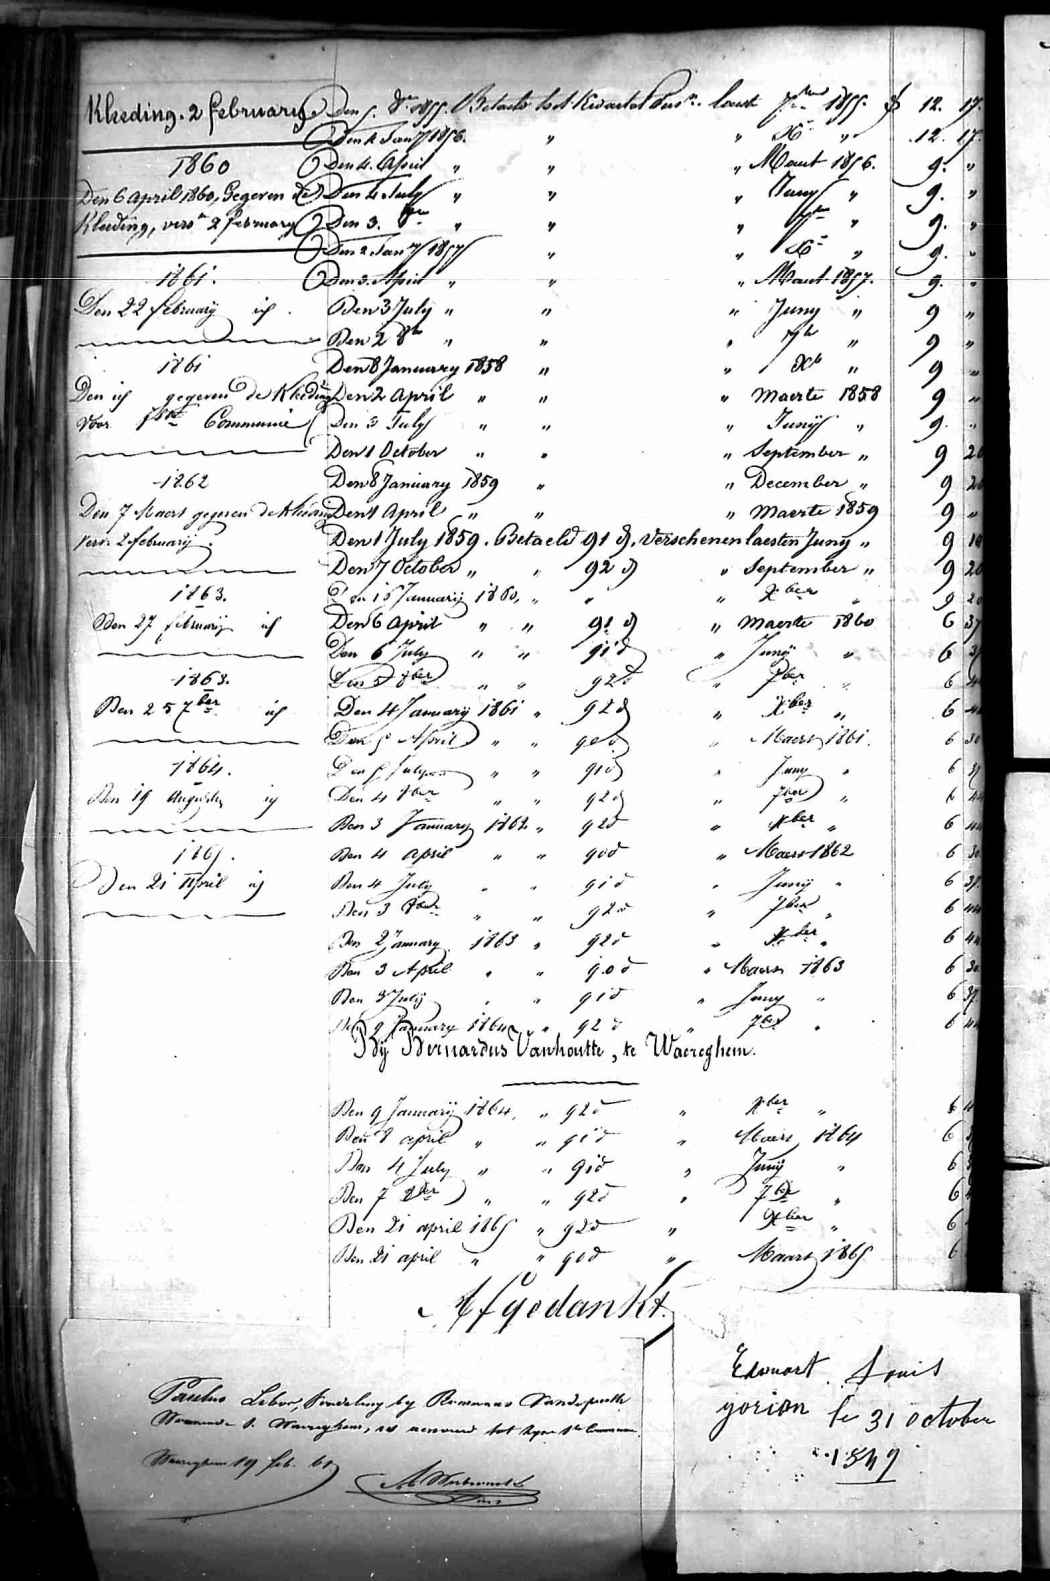 Kleeding. 2 february
1860
Den 6 April 1860, Gegeven de
Kleeding, versn 2 February
1861.
Den 22 february id
1861
Den id gegeven de Kleeding
voor 1ste Communie
1862
Den 7 Maert gegeven de Kleeding
vern 2 february.
1863.
Den 27 february id
1863.
Den 25 7ber id
1864.
Den 19 Augusty id
1865.
Den 21 April id
Den 5. 8br 1855. Betaelt het Kwartal laest 7ber 1855. 12. 17.
Den 2 Jany 1856. " " Xr " 12. 17.
Den 4. April " " " Maart 1856. 9. "
Den 4 July " " " Juny " 9. "
Den 3. 8br " " " 7br " 9. "
Den 2 Jany 1857 " " Xr " 9. "
Den 3. April " " " Maart 1857. 9. "
Den 3 July " " " Juny " 9 "
Den 2 8br " " " 7br " 9 "
Den 8 January 1858 " " Xbr " 9 "
Den 2 April " " " Maerte 1858 9 "
Den 3 July " " " Junij " 9. "
Den 1 October " " " September " 9 20
Den 8 January 1859 " " December " 9 20
Den 1 April " " " Maerte 1859 9 "
Den 1 July 1859. Betaeld 91 d, verschenen laesten Juny " 9 10
Den 7 October " " 92 d " September " 9 20
Den 15 Januarij 1860, " " " Xber " 9 20
Den 6 April " " 91 d " Maerte 1860 6 37
Den 6 July " " 91 d " Junij " 6 37
Den 5 8ber " " 92 d " 7ber " 6 44
Den 4 January 1861 " 92 d " Xber " 6 44
Den 5 April " " 90 d " Maers 1861. 6 30
Den 5 July " " 91 d " Juny " 6 37
Den 4 8ber " " 92 d " 7ber " 6 44
Den 3 January 1862 " 92 d " Xber " 6 44
Den 4 April " " 90 d " Maers 1862 6 30
Den 4 July " " 91 d " Junij " 6 37
Den 3 8ber " " 92 d " 7ber " 6 44
Den 2 January 1863 " 92 d " Xber " 6 44
Den 3 April " " 90 d " Maers 1863 6 30
Den 3 July " " 91 d " Juny " 6 37
Den 9 January 1864 " 92 d " 7ber " 6 44
Bij Bernardus Vanhoutte, te Waereghem.
Den 9 Januarij 1864, " 92 d " Xber " 6
Den 8 april " " 91 d " Maers 1864 6
Den 4 July " " 91 d " Junij " 6
Den 7 8ber " " 92 d " 7ber " 6
Den 21 april 1865 " 92 d " Xber " 6
Den 21 april " " 90 d " Maars 1865 6
Afgedankt.
Paulus
Waereghem 19 feb. 61
Edouart Louis
gorion le 31 october
1849